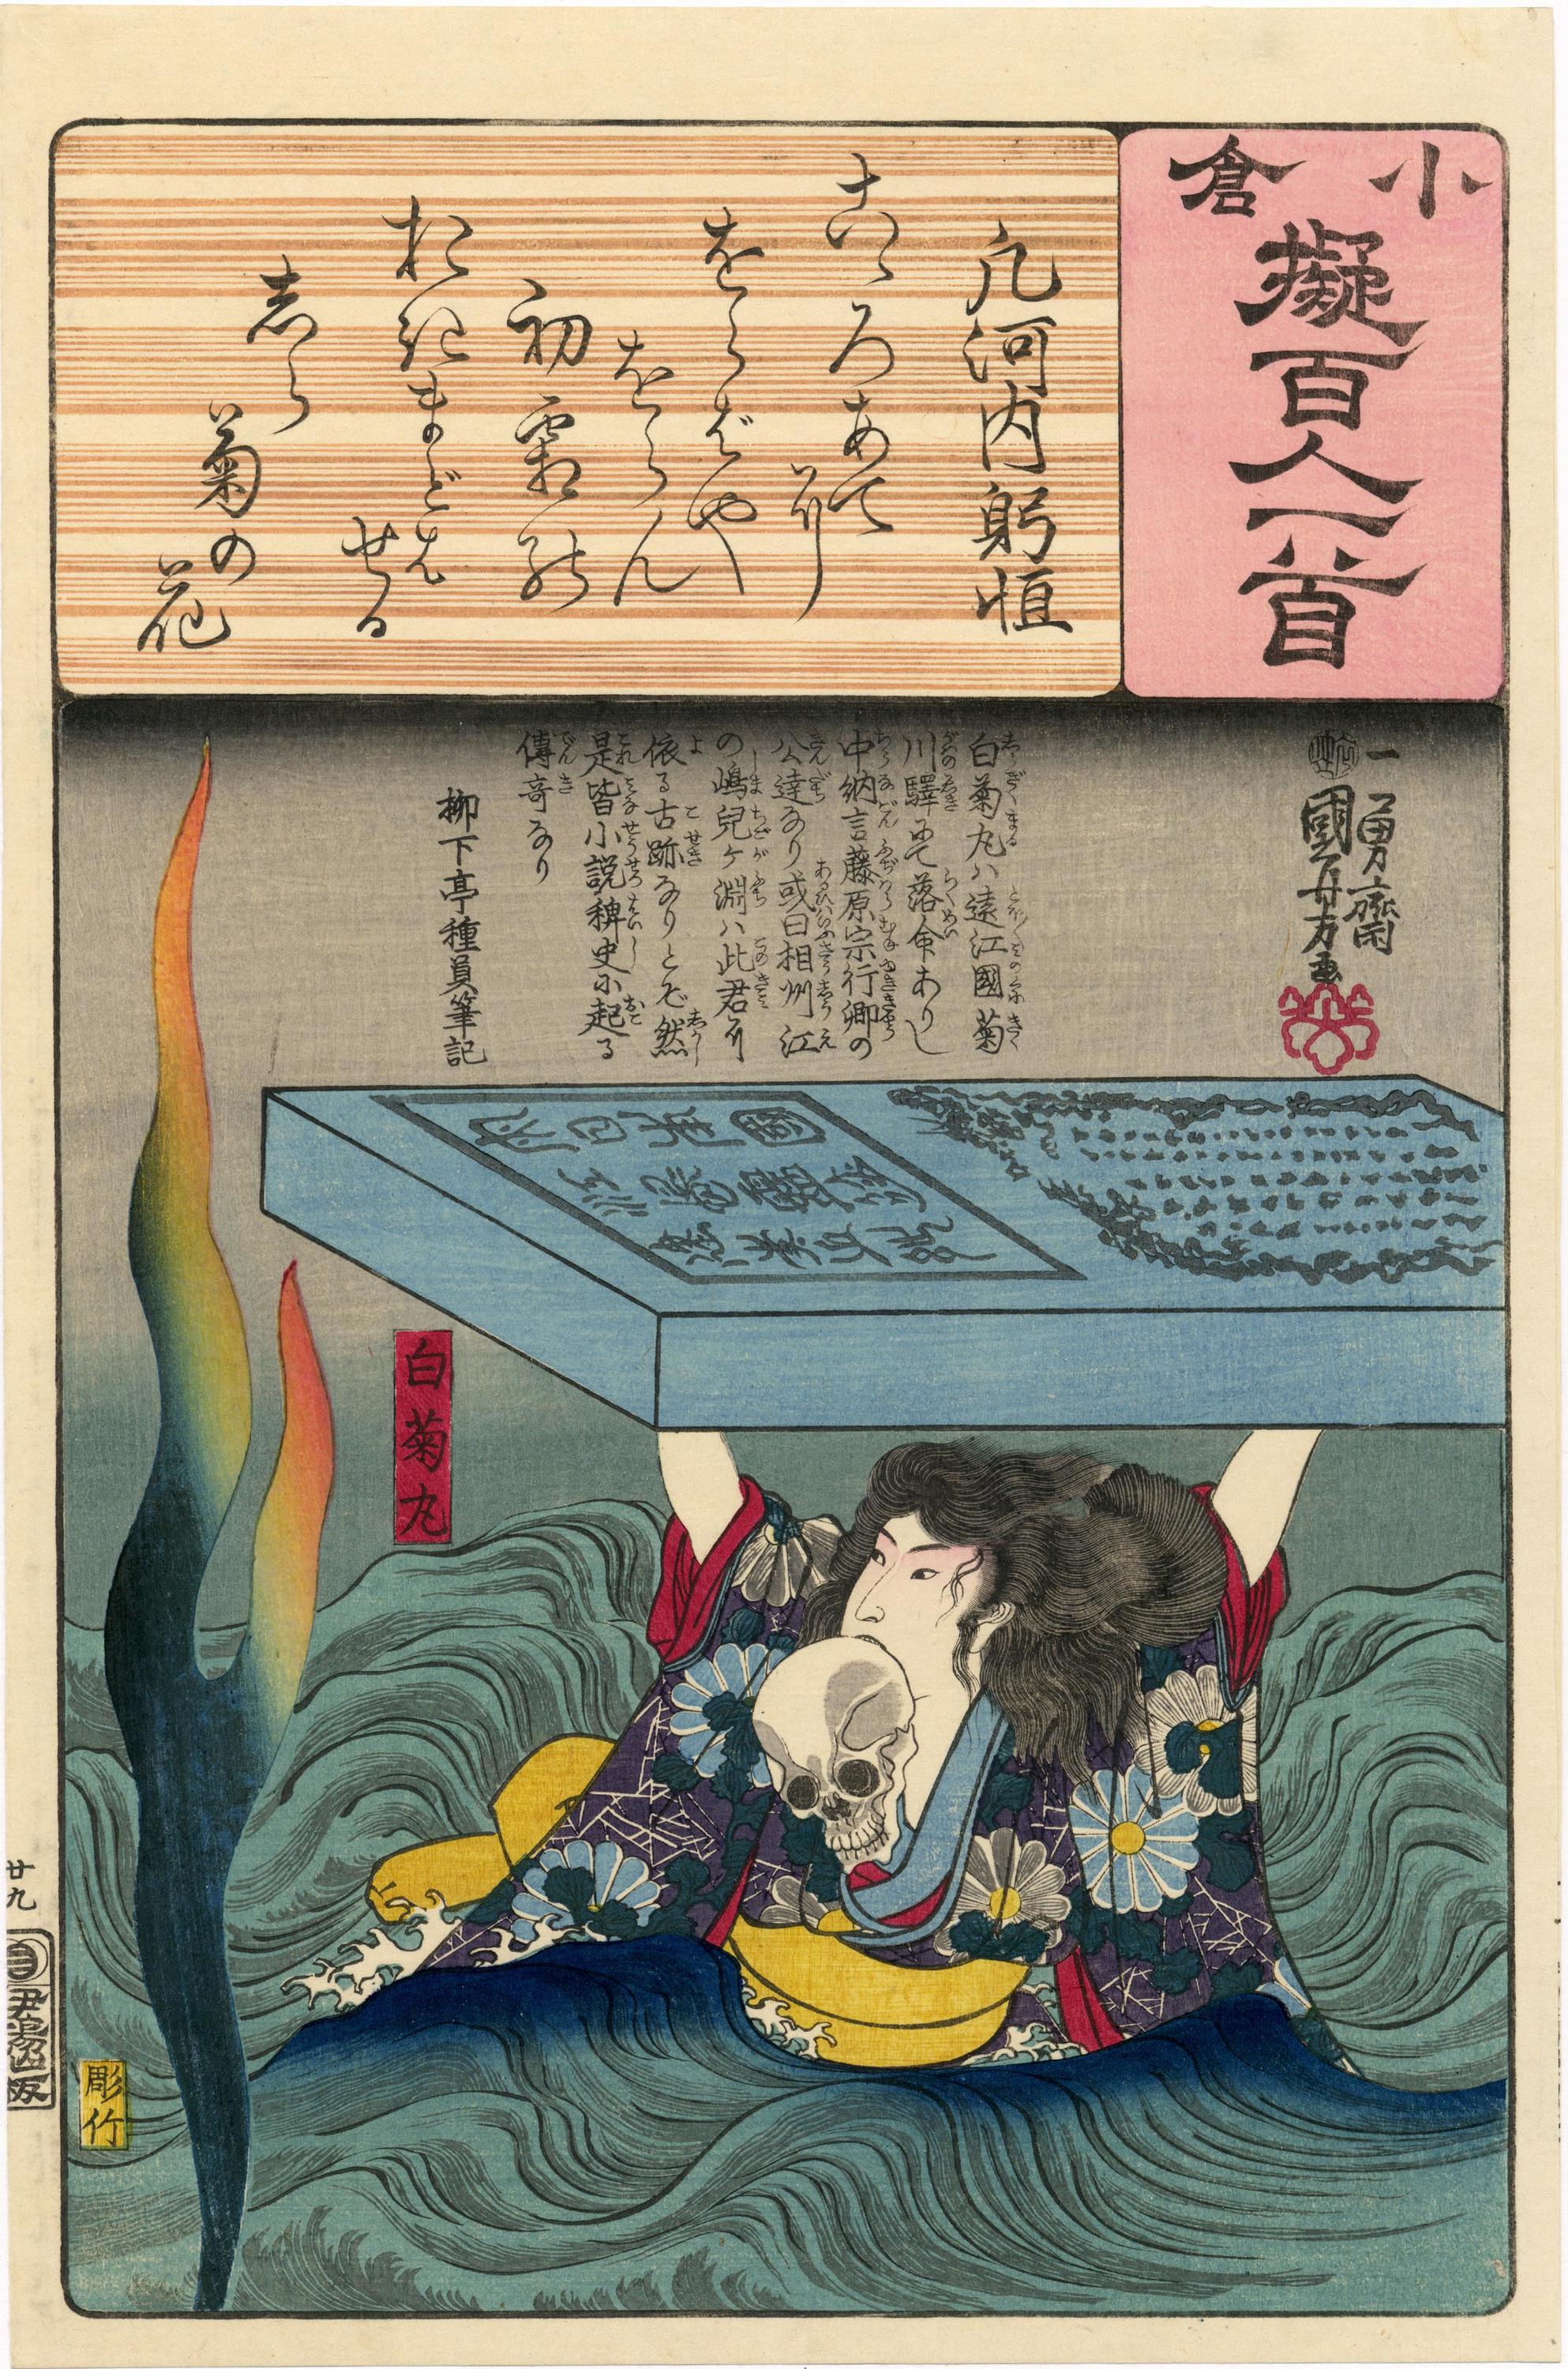 小倉
擬百人一首
凡河内躬恒
古ゝろあて
尓
をらばや
をらん
初霜能
於起まどは
せる
志ら
菊の
花
一勇齋
國芳画
白菊丸ハ遠江國菊
川驛にて落命ありし
中納言藤原宗行卿の
公達なり或曰相州江
の嶋兒ヶ淵ハ此君尓
依る古跡なりとぞ然
是皆小説稗史に起る
傳奇なり
柳下亭種員筆記
白菊丸
廿九
彫竹